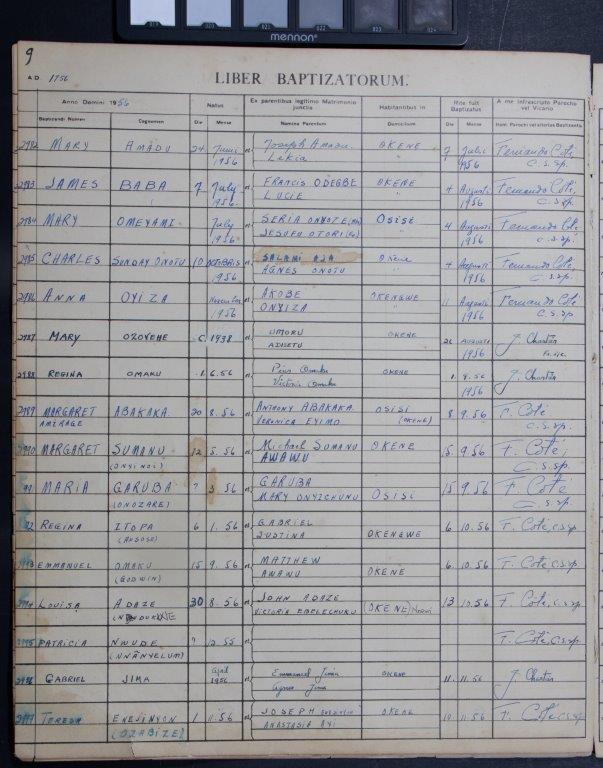 mennon
9
A D 1956
LIBER BAPTIZATORUM.
Anno Domini 1956 Natus Ex parentibus legitimo Matrimonio junctis Habitantibus in Rite fuit Baptizatus A me infrascripto Parocho vel Vicario
Baptizandi Nomen Cognomen Die Mense Nomina Parentum Domicilium Die Mense
2982 MARY AMADU 24 Junii 1956 Joseph Amadu OKENE 7 Julii 1956 Fernando Coté
Lekia " C.S.sp.
2983 JAMES BABA 7 July 1956 FRANCIS ODEGBE OKENE 4 Augusti 1956 Fernando Coté
LUCIE " C.S.sp.
2984 MARY OMEYAMI July 1956 OSISI 4 Augusti 1956 Fernando Coté
C.S.sp.
2985 CHARLES SUNDAY ONOTU 10 OCTOBRIS 1956 SALAMI AJA Okene 4 Augusti 1956 Fernando Coté
AGNES ONOTU " C.S.sp.
2986 ANNA OYIZA November 1956 AKOBE OKENGWE 11 Augusti 1956 Fernando Coté
ONYIZA " C.S.sp.
2987 MARY OZOVEHE C. 1938 UMORU OKENE 26 AUGUSTI 1956 J. Chartier
ADISETU
2988 REGINA OMAKU 1. 6. 56 Pius Omaku OKENE 1. 9. 56 J. Chartier
Victoria Omaku 1956
2989 MARGARET ABAKAKA 20 8. 56 ANTHONY ABAKAKA OSISI 8 9. 56 F. Coté
VERONICA EYIMO (OKENE) C.S.sp.
2990 MARGARET SUMANU 12 5. 56 Michael SUMANU OKENE 15 9.56 F. Coté,
(ONYINOI) AWAWU C.S.sp.
91 MARIA GARUBA ? 3. 56 GARUBA 15 9.56 F. Coté
(ONOZARE) MARY ONYICHUNU OSISI C.S.sp.
92 REGINA ITOPA 6 1. 56 GABRIEL 6 10.56 F. Coté, C.S.sp.
JUSTINA OKENGWE
2993 EMMANUEL OMAKU 15 9. 56 MATTHEW 6 10.56 F. Coté, C.S.sp.
(GODWIN) AWAWU OKENE
2994 LOUISA ADAZE 30 8. 56 JOHN ADAZE (OKENE) 13 10.56 F. Coté, C.S.sp.
VICTORIA EBELECHUKU
2995 PATRICIA NWUDE ? 12 55 F. Coté, C.S.sp.
(NWANYELUM)
2996 GABRIEL JIMA April 1956 Emmanuel Jima OKENE 11. 11. 56 J. Chartier
Agnes Jima
2997 TERESA ENEJINYON 1 11. 56 JOSEPH OKENE 10 11.56 F. Coté, C.S.sp.
(OZABIZE) ANASTASIA AYI